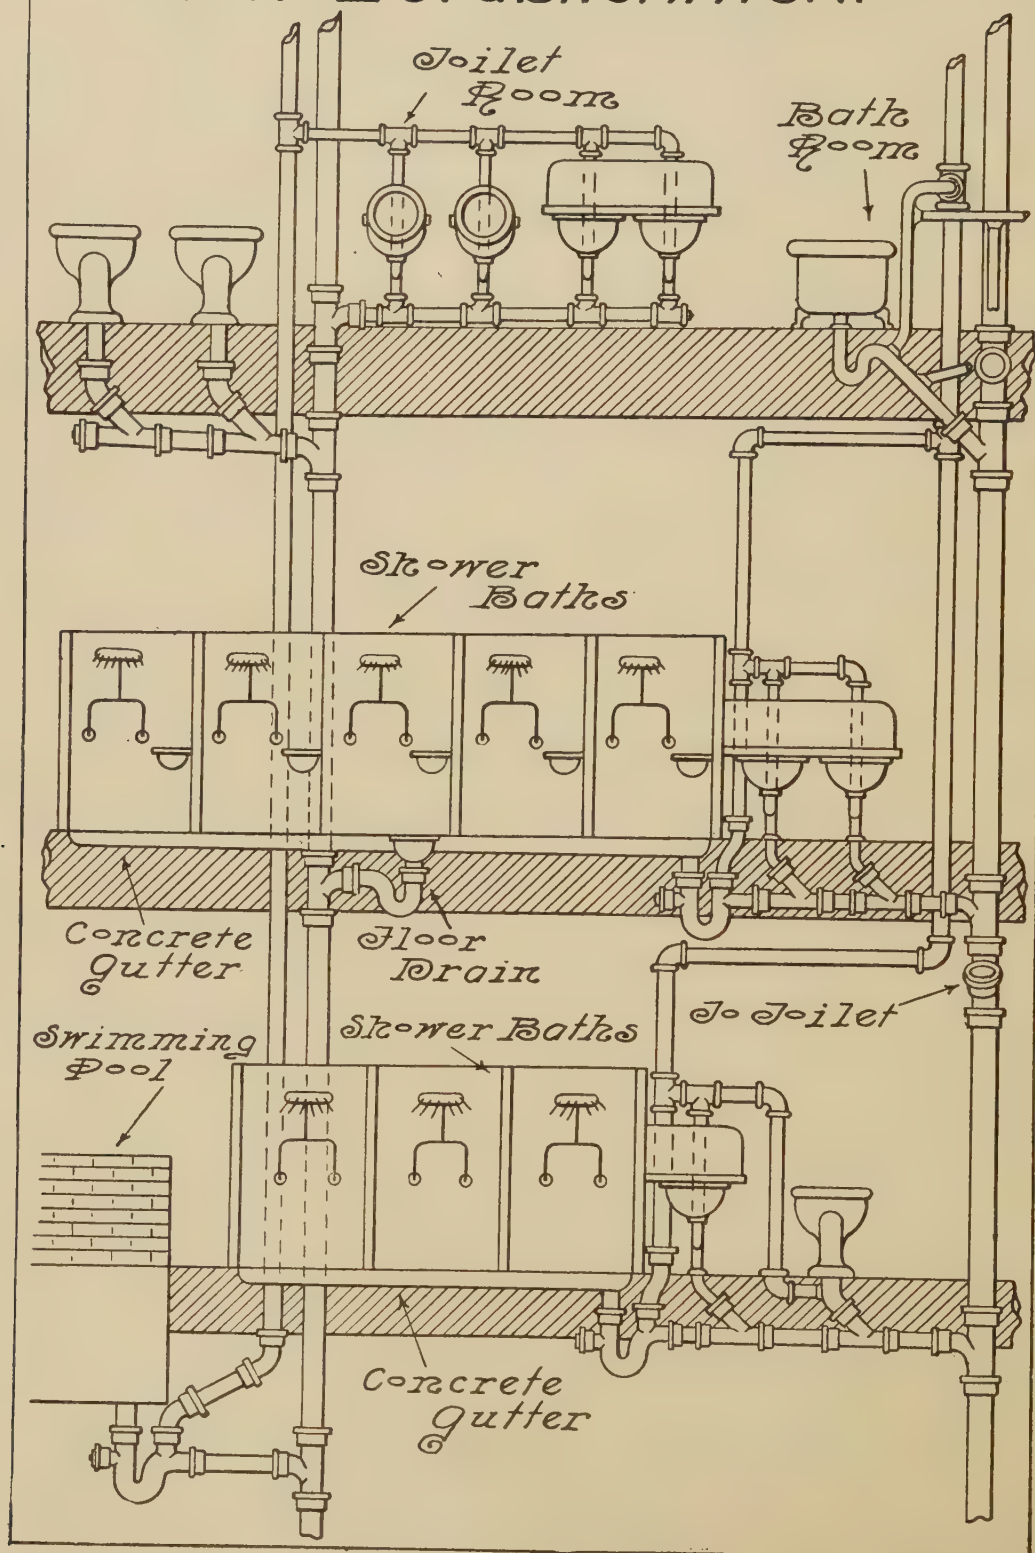 Toilet
Room
Bath
Room
Shower
Baths
Concrete
gutter
Floor
Drain
To Toilet
Swimming
Pool
Shower Baths
Concrete
gutter